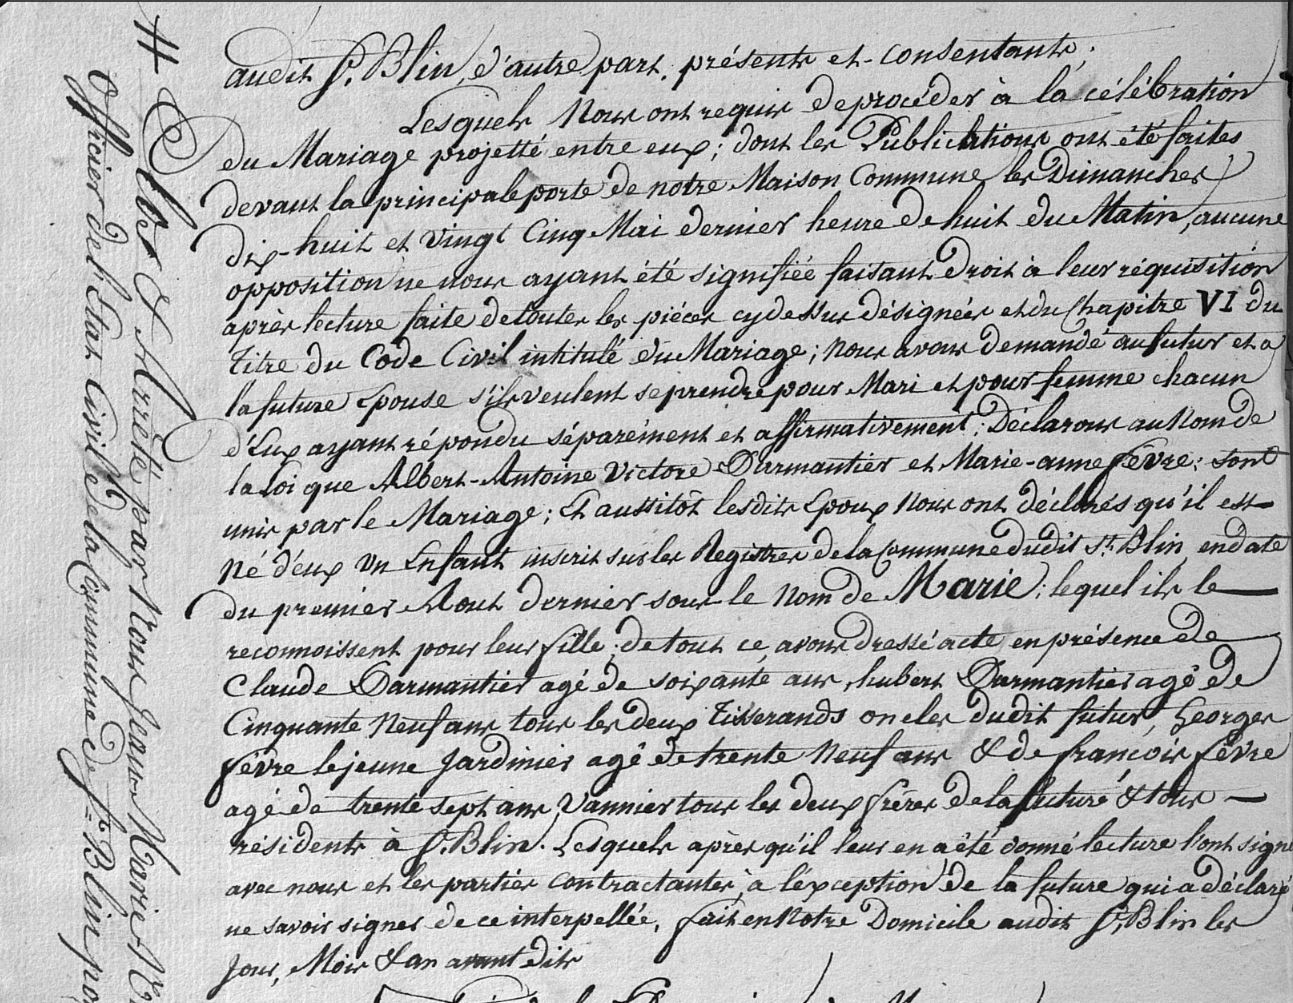 audit St. Blin, d'autre part, présents et consentants;
Lesquels Nous ont requis de procéder à la célébration
du Mariage projetté entre eux; dont les Publications ont été faites
devant la principale porte de notre Maison Commune les Dimanches
dix-huit et vingt Cinq Mai dernier heure de huit du Matin, aucune
opposition ne nous ayant été signifiée faisant droit à leur réquisition
après lecture faite de toutes les piéces cy dessus désignées et du Chapitre VI du
titre du Code Civil intitulé du Mariage; Nous avons demandé au futur et a
la future Epouse s'ils veulent se prendre pour Mari et pour femme chacun
d'Eux ayant répondu séparément et affirmativement; Déclarons au Nom de
la Loi que Albert-Antoine Victore Darmantier et Marie-anne fèvre; sont
unis par le Mariage; Et aussitôt lesdits Epoux Nous ont déclarés qu'il est
Né d'eux un Enfant inscrit sur les Registres de la Commune dudit St. Blin en date
du premier Aout dernier sous le Nom de Marie; lequel ils le
reconnoissent pour leur fille; de tout ce, avons dressé acte en présence de
Claude Darmantier agé de soixante ans, hubert Darmantier agé de
Cinquante Neuf ans tous les deux Tisserands oncles dudit futur Georges
fèvre le jeune Jardinier agé de trente Neuf ans & de françois fèvre
agé de trente sept ans, Vannier tous les deux frères de la future & tous
résidents à St. Blin. Lesquels après qu'il leur en a été donné lecture l'ont signé
avec nous et les parties contractantes, à l'exception de la future qui a déclaré
ne savoir signer de ce interpellée. fait en Notre Domicile audit St. Blin les
Jour, Mois & an avant dits
Clos & Arrêté par Nous Jean-Marie
Officier de l'Etat Civil de la Commune de St. Blin